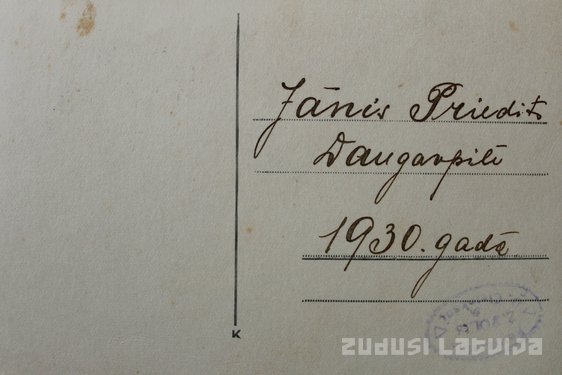 Jānis Priedīts
Daugavpilī
1930. gadā.
K
ZUDUSI LATVIJA